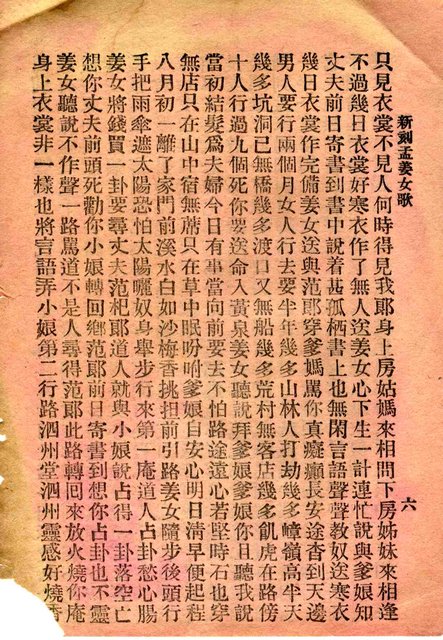 新刻孟姜女歌
六
只見衣裳不見人何時得見我郎身上房姑媽來相問下房姊妹來相逢
不過幾日衣裳好寒衣作了無人送姜女心下生一計連忙說與爹娘知
丈夫前日寄書到書中說着甚孤栖書上也無閑言語聲聲教奴送寒衣
幾日衣裳作完備姜女送與范郎穿爹媽罵你真癡癲長安途杳到天邊
男人要行兩個月女人行去要半年幾多山林人打劫幾多嶂嶺高半天
幾多坑洞已無橋幾多渡口又無船幾多荒村無客店幾多飢虎在路傍
十人行過九個死你要送命入黃泉姜女聽說拜爹娘爹娘你且聽我說
當初結髮爲夫婦今日有事當向前要去不怕路途遠心若堅時石也穿
無店只在山中宿無蓆只在草中眠吩咐爹娘自安心明日清早便起程
八月初一離了家門前溪水白如沙梅香挑担前引路姜女隨步後頭行
手把雨傘遮太陽恐怕太陽曬奴身舉步行來第一庵道人占卦愁心腸
姜女將錢買一卦要尋丈夫范杞郎道人就與小娘說占得一卦落空亡
想你丈夫前頭死勸你小娘轉回鄉范郎前日寄書到想你占卦也不靈
姜女聽說不作聲一路罵道不是人尋得范郎此路轉囘來放火燒你庵
身上衣裳非一樣也將言語弄小娘第二行路泗州堂泗州靈感好燒香